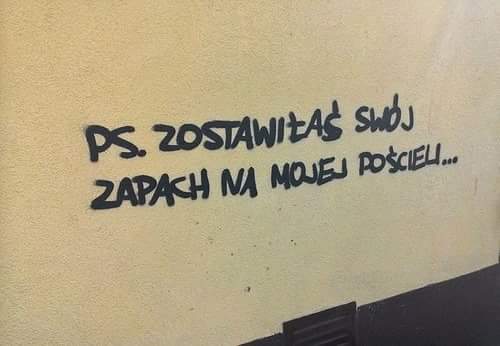 PS. ZOSTAWIŁAŚ SWÓJ
ZAPACH NA MOJEJ POŚCIELI...